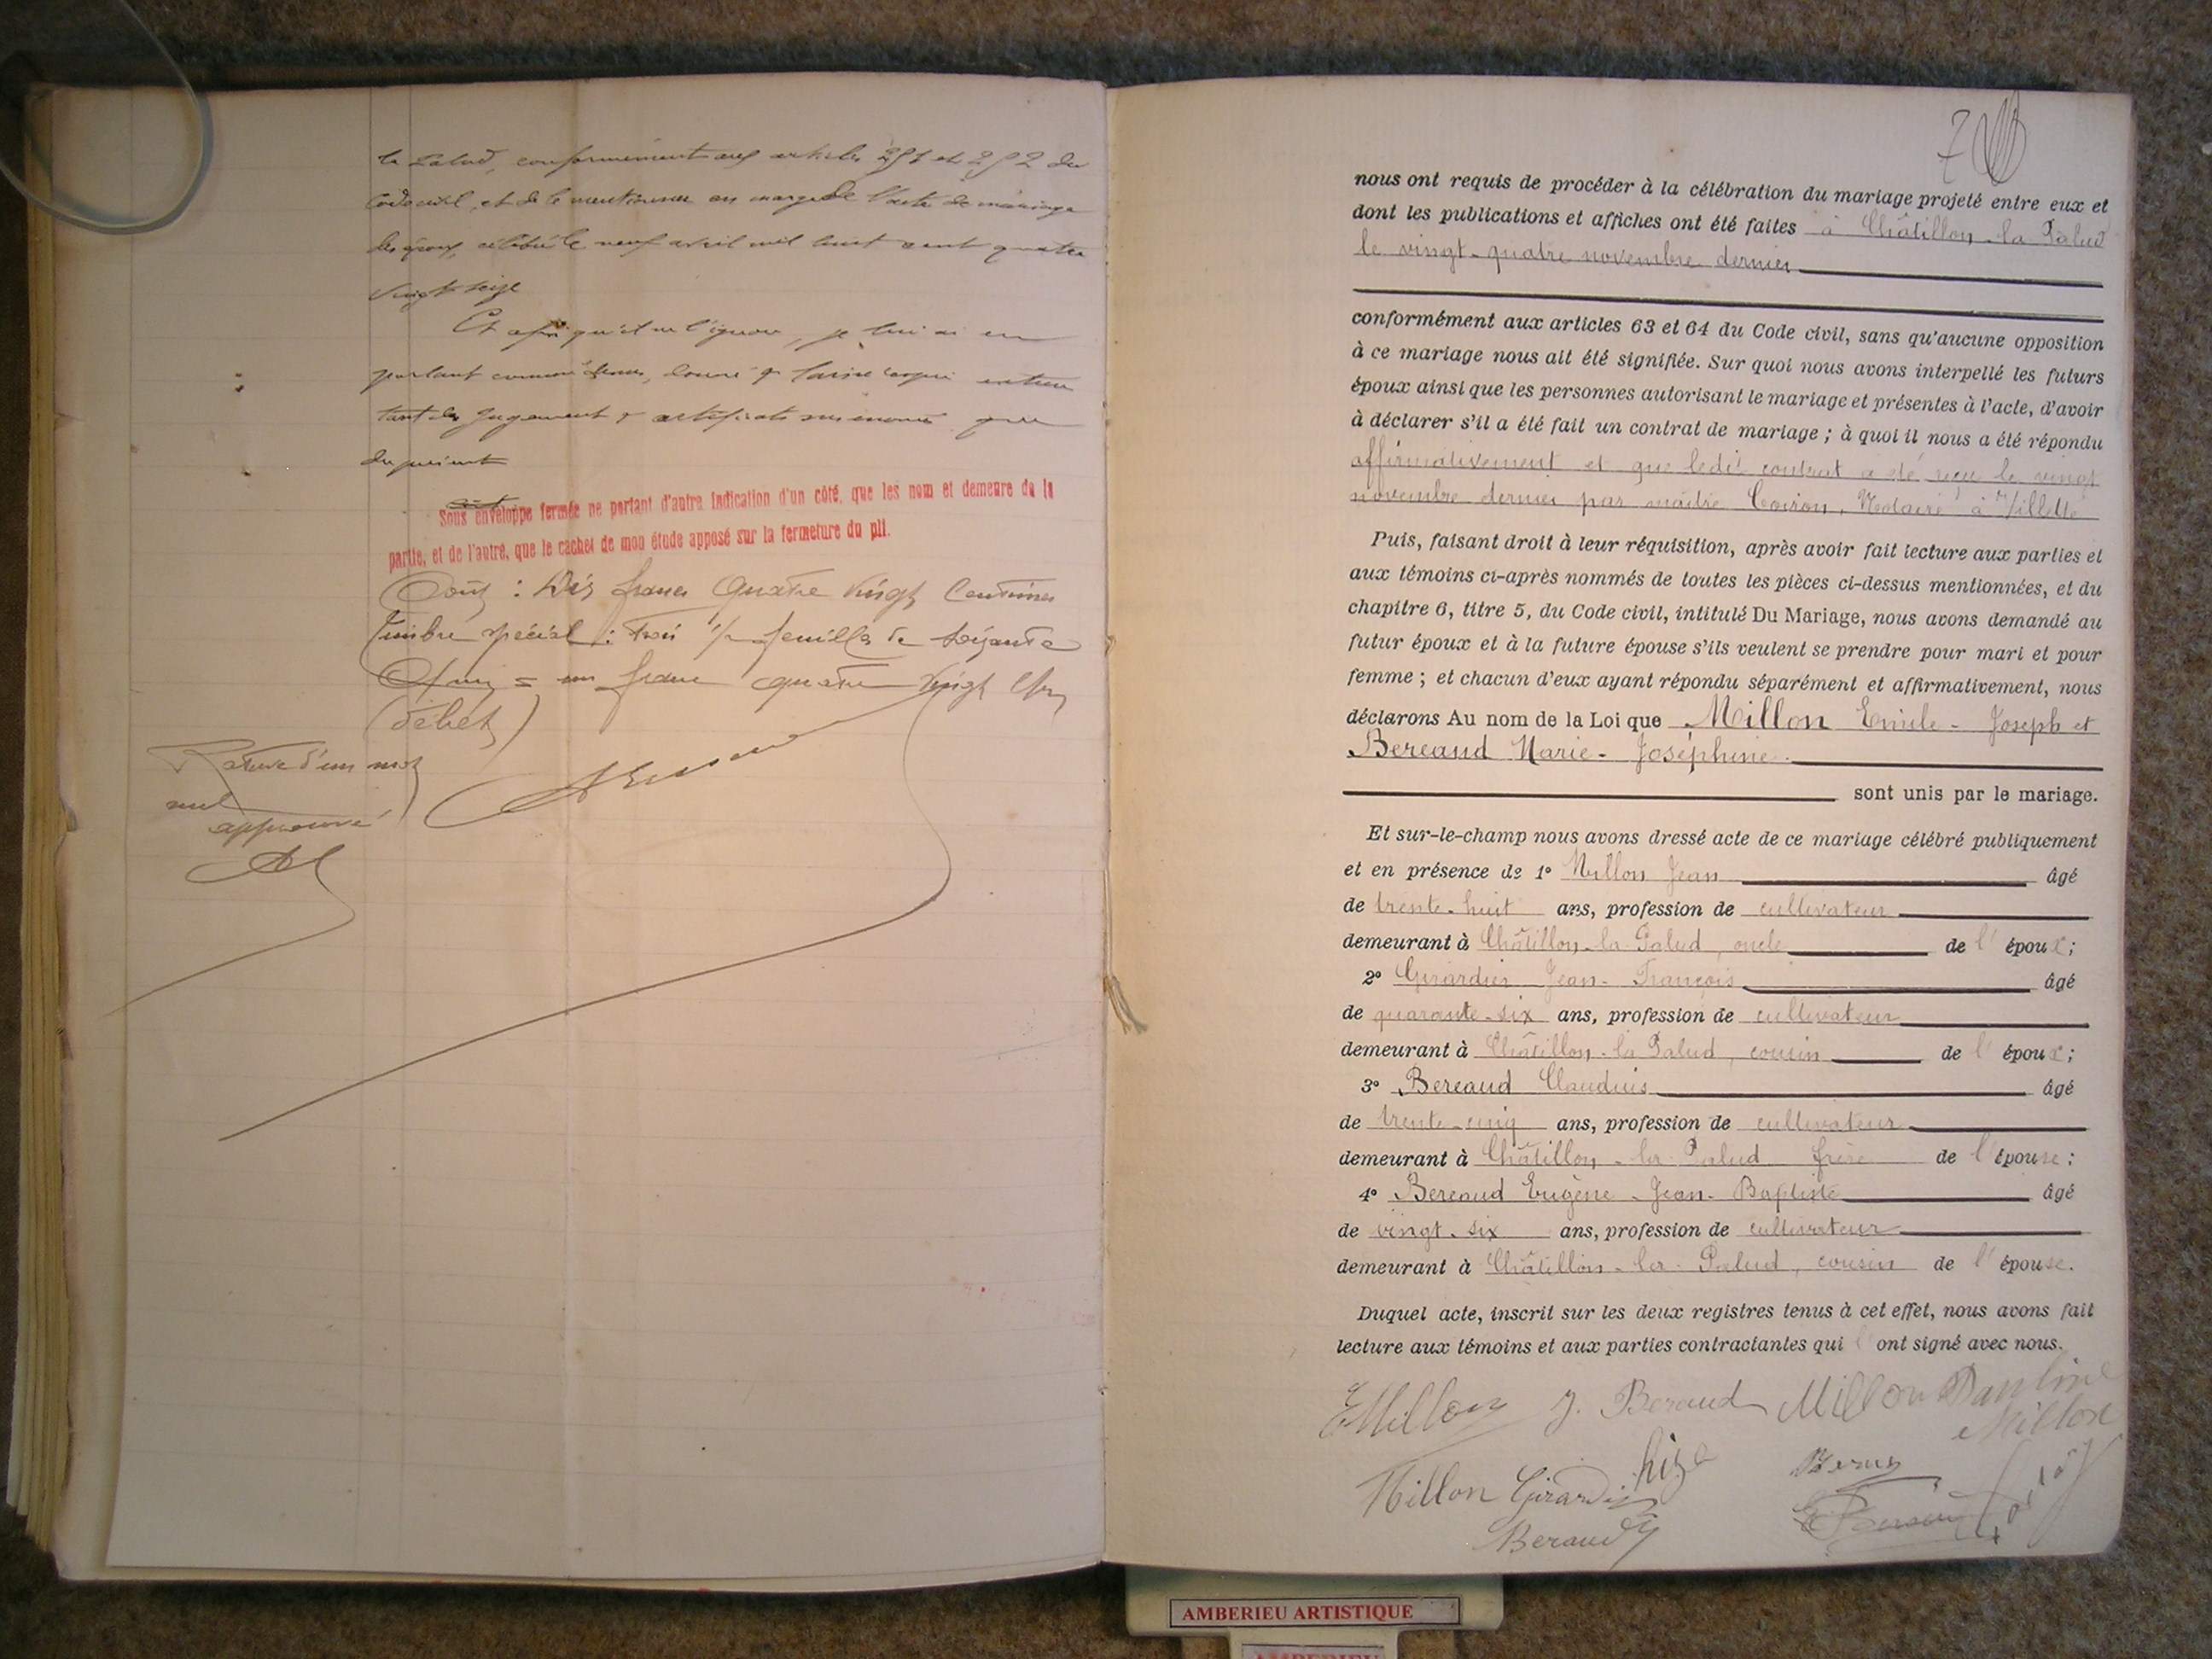 la Palud, conformément aux articles 251 et 252 du
Code civil, et de le mentionner en marge de l'acte de mariage
des époux, célébré le neuf avril mil huit cent quatre
vingt seize
Et afin qu'il ne l'ignore, je lui ai en
parlant comme dessus, donné & laissé copie entière
tant des jugement & certificats sus énoncés que
du présent
Sous enveloppe fermée ne portant d'autre indication d'un côté, que les nom et demeure de la
partie, et de l'autre, que le cachet de mon étude apposé sur la fermeture du pli.
Coût : Dix francs quatre vingt Centimes
Timbre spécial : trois feuilles de soixante
= un franc quatre vingt
(débet)
Rature d'un mot
nul
approuvé
7
nous ont requis de procéder à la célébration du mariage projeté entre eux et
dont les publications et affiches ont été faites à Châtillon-la-Palud
le vingt-quatre novembre dernier
conformément aux articles 63 et 64 du Code civil, sans qu'aucune opposition
à ce mariage nous ait été signifiée. Sur quoi nous avons interpellé les futurs
époux ainsi que les personnes autorisant le mariage et présentes à l'acte, d'avoir
à déclarer s'il a été fait un contrat de mariage ; à quoi il nous a été répondu
affirmativement et que ledit contrat a été reçu le vingt
novembre dernier par maître Coiron, Notaire à Villette
Puis, faisant droit à leur réquisition, après avoir fait lecture aux parties et
aux témoins ci-après nommés de toutes les pièces ci-dessus mentionnées, et du
chapitre 6, titre 5, du Code civil, intitulé Du Mariage, nous avons demandé au
futur époux et à la future épouse s'ils veulent se prendre pour mari et pour
femme ; et chacun d'eux ayant répondu séparément et affirmativement, nous
déclarons Au nom de la Loi que Millon Emile-Joseph et
Bereaud Marie-Joséphine
sont unis par le mariage.
Et sur-le-champ nous avons dressé acte de ce mariage célébré publiquement
et en présence de 1° Millon Jean âgé
de trente-huit ans, profession de cultivateur
demeurant à Châtillon-la-Palud, oncle de l'époux;
2° Girardier Jean-François âgé
de quarante-six ans, profession de cultivateur
demeurant à Châtillon-la-Palud, cousin de l'époux;
3° Bereaud Claudius âgé
de trente-cinq ans, profession de cultivateur
demeurant à Châtillon-la-Palud frère de l'épouse;
4° Bereaud Eugène-Jean-Baptiste âgé
de vingt-six ans, profession de cultivateur
demeurant à Châtillon-la-Palud, cousin de l'épouse.
Duquel acte, inscrit sur les deux registres tenus à cet effet, nous avons fait
lecture aux témoins et aux parties contractantes qui l'ont signé avec nous.
EMillon J. Beraud Millon Pauline
Millon
Millon Girardier
Beraud
AMBERIEU ARTISTIQUE
AMBERIEU